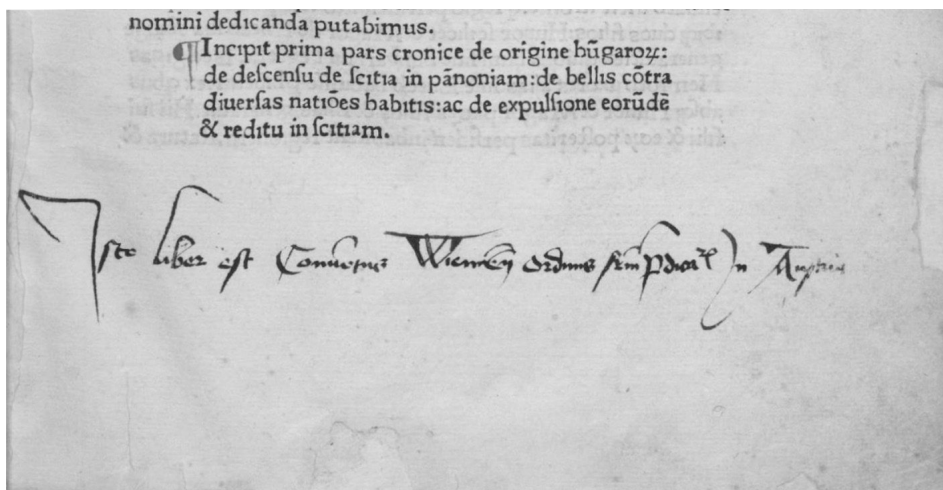 nomini dedicanda putabimus.
¶Incipit prima pars cronice de origine hũgaroꝝ:
de deſcenſu de ſcitia in pãnoniam: de bellis cõtra
diuerſas natiões habitis: ac de expulſione eorũdẽ
& reditu in ſcitiam.
Iste liber est Conuẽtus Wiennẽ ordinis frm̃ p̃dicatꝝ in Austria